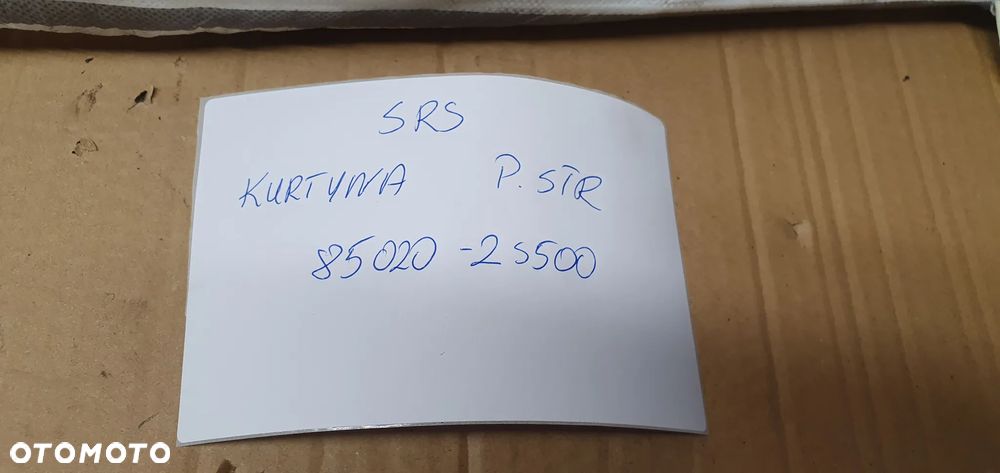 SRS
KURTYNA P. STR
85020-2S500
OTOMOTO